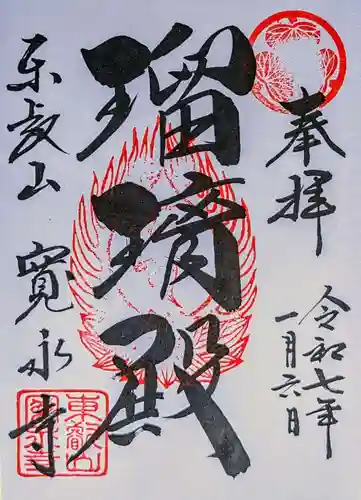 奉拝
令和七年
一月六日
瑠璃殿
東叡山
寛永寺
東叡山